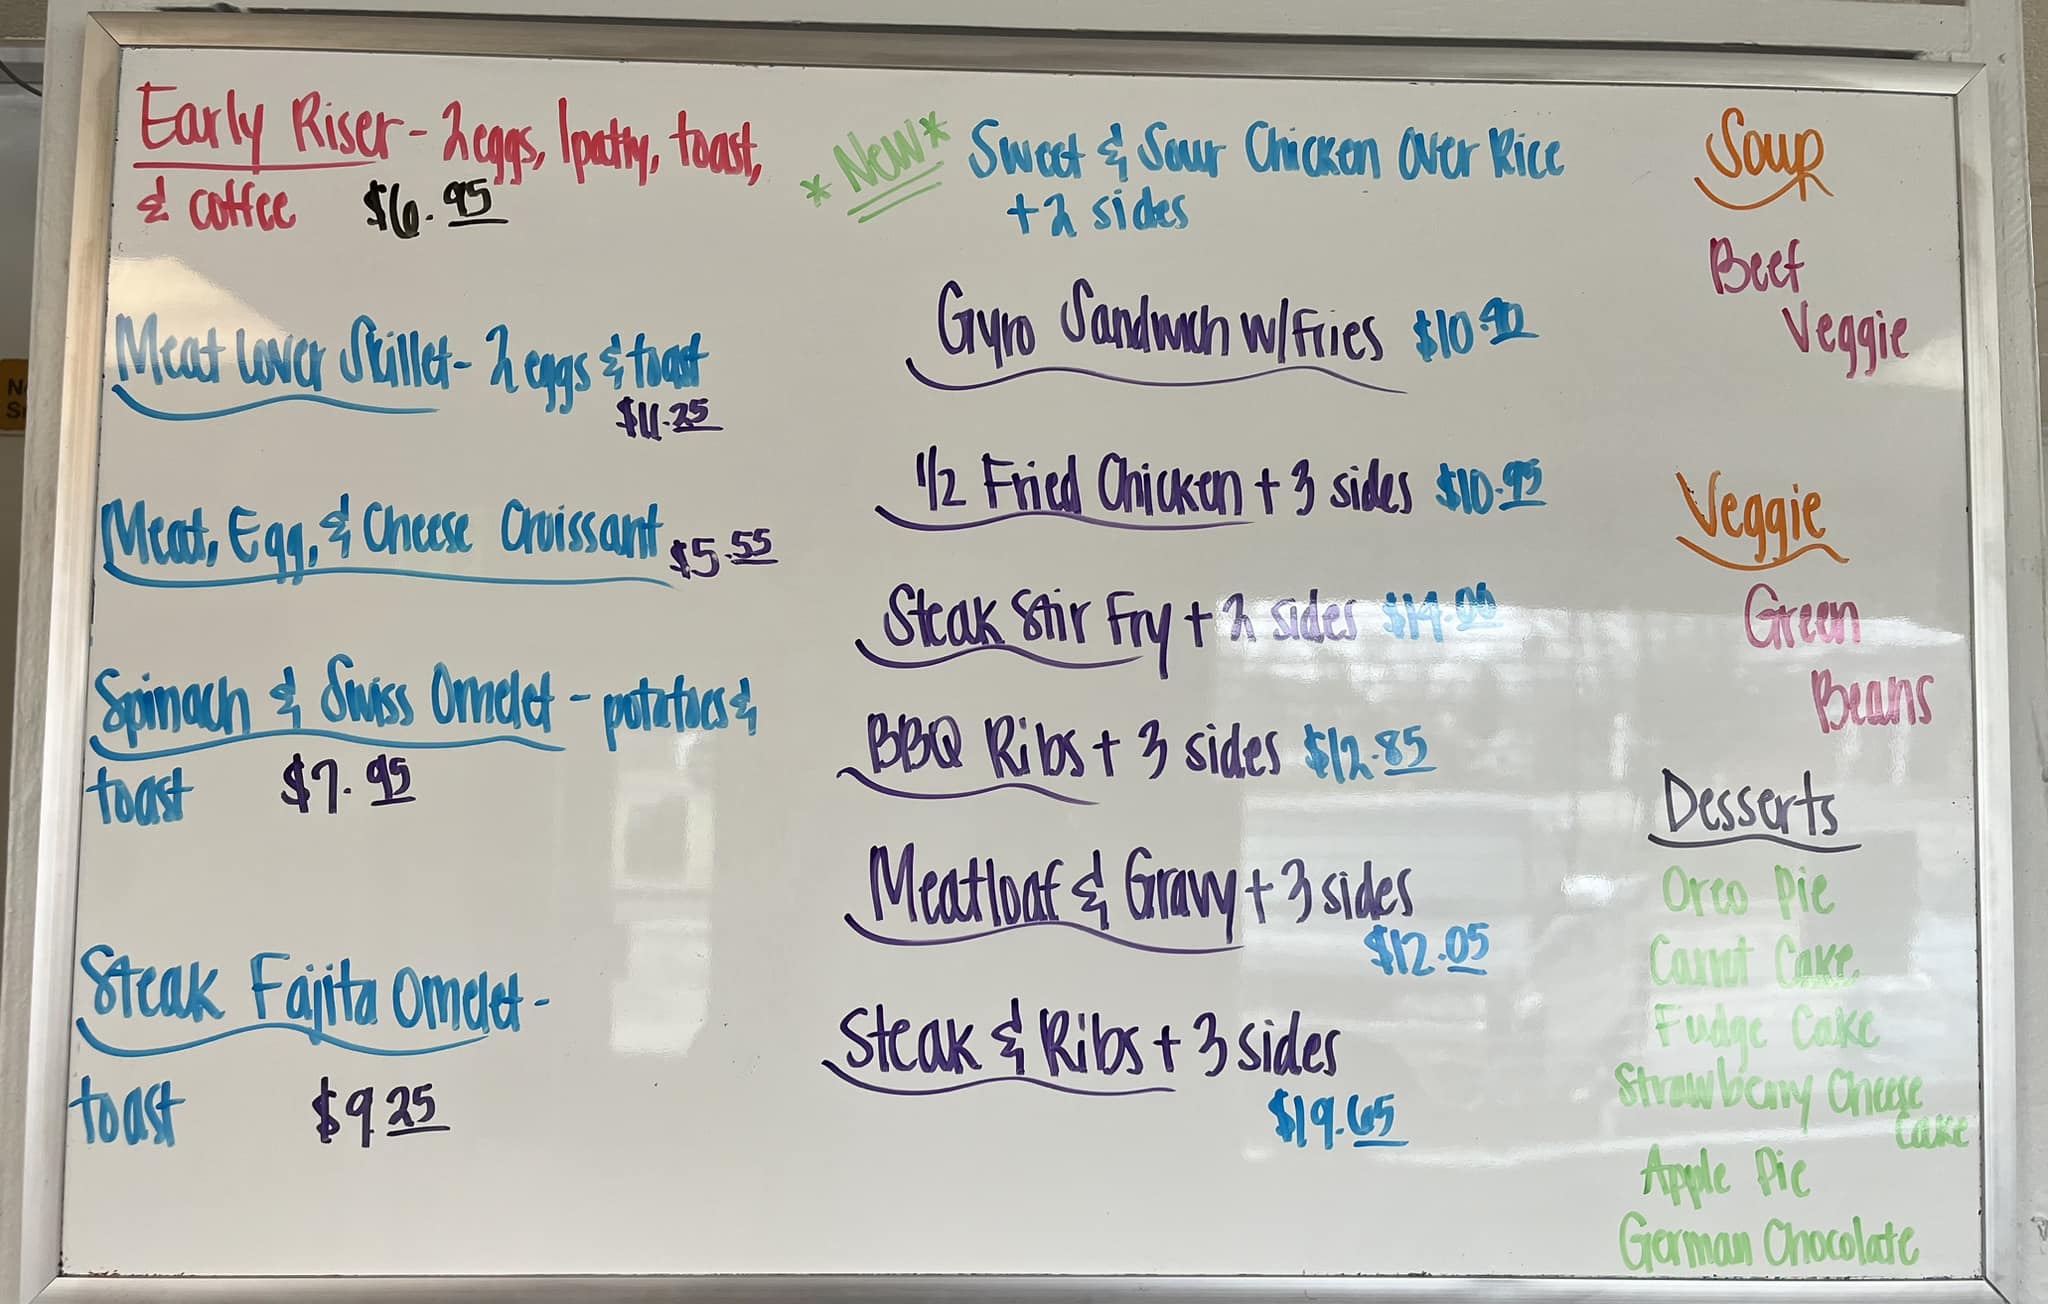 Early Riser - 2 eggs, 1 patty, toast,
& coffee $6.95
Meat Lover Skillet - 2 eggs & toast
$11.25
Meat, Egg, & Cheese Croissant $5.55
Spinach & Swiss Omelet - potatoes &
toast $7.95
Steak Fajita Omelet -
toast $9.25
*New* Sweet & Sour Chicken Over Rice
+ 2 sides
Gyro Sandwich w/Fries $10.90
1/2 Fried Chicken + 3 sides $10.95
Steak Stir Fry + 2 sides
BBQ Ribs + 3 sides $12.85
Meatloaf & Gravy + 3 sides
$12.05
Steak & Ribs + 3 sides
$19.65
Soup
Beef
Veggie
Veggie
Green
Beans
Desserts
Oreo Pie
Carrot Cake
Fudge Cake
Strawberry Cheese
Cake
Apple Pie
German Chocolate